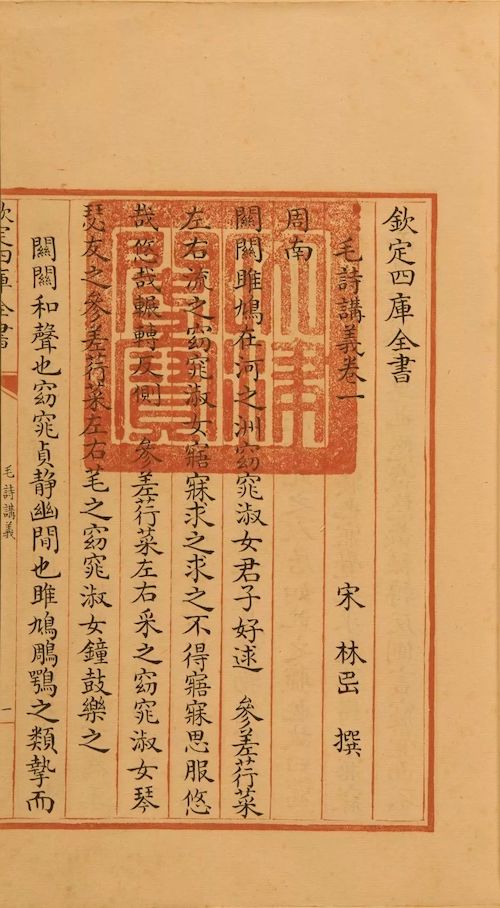 欽定四庫全書
毛詩講義卷一 宋 林岊 撰
周南
關關雎鳩在河之洲窈窕淑女君子好逑 參差荇菜
左右流之窈窕淑女寤寐求之求之不得寤寐思服悠
哉悠哉輾轉反側 參差荇菜左右采之窈窕淑女琴
瑟友之參差荇菜左右芼之窈窕淑女鐘鼓樂之
關關和聲也窈窕貞静幽閒也雎鳩鵰鶚之類摯而
欽定四庫全書
毛詩講義
一